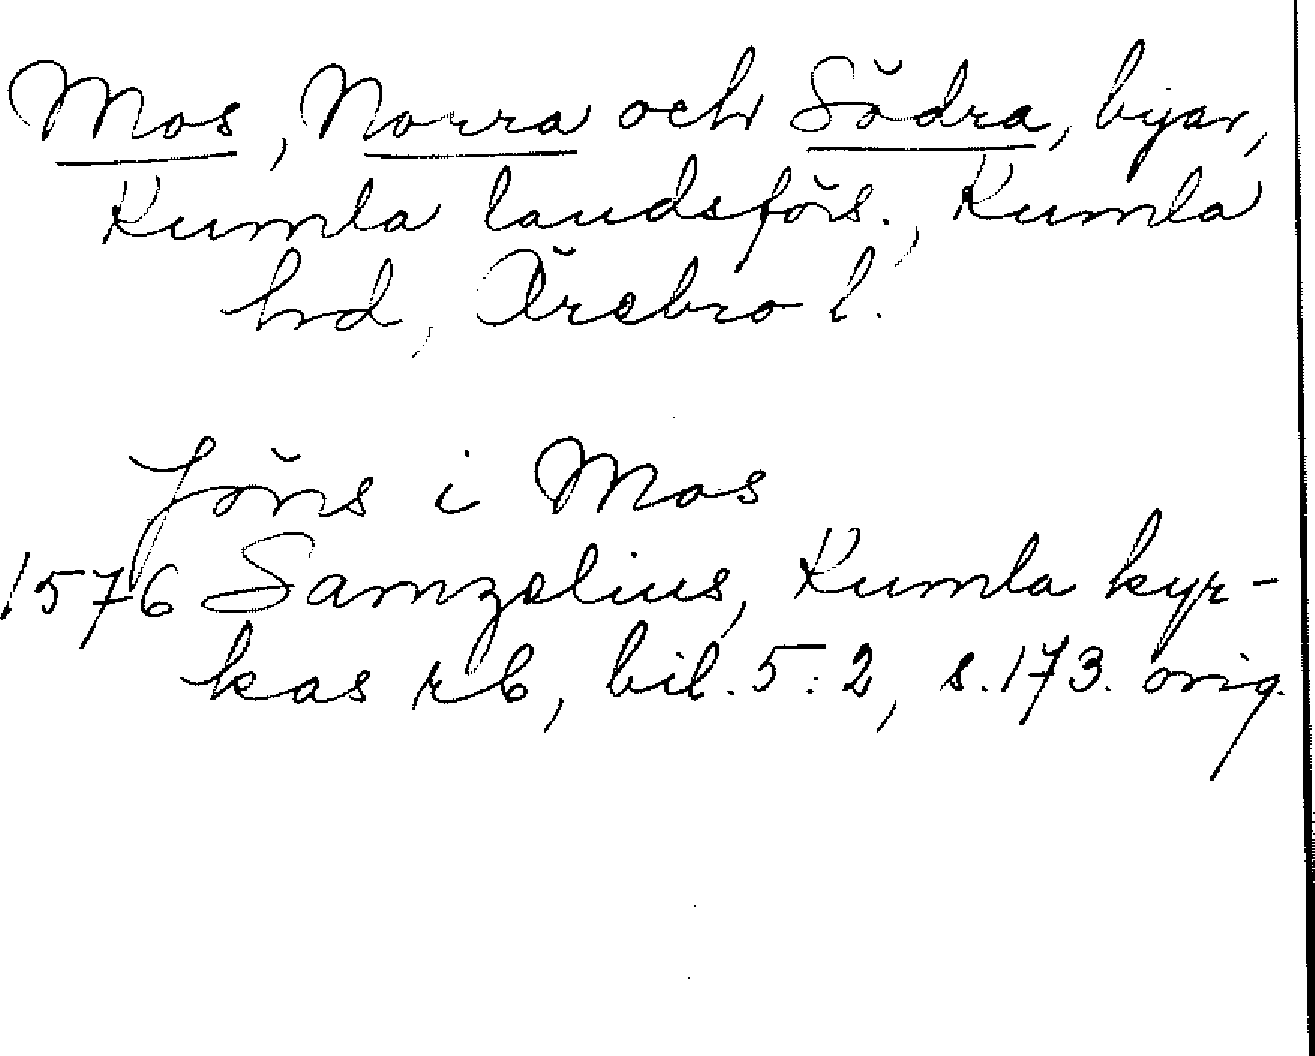 Mos, Norra och Södra, byar,
Kumla landsförs., Kumla
hrd, Örebro l.
Jöns i Mos
1576 Samzelius, Kumla kyr-
kas rb, bil. 5:2, s. 173. orig.